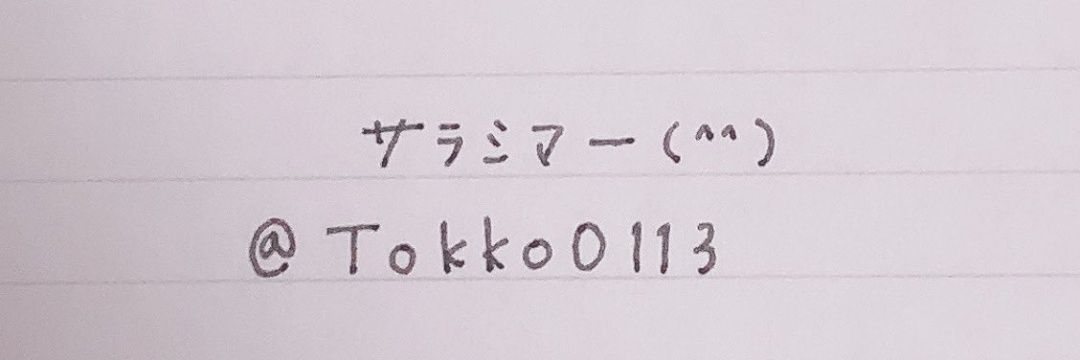 サラミマー(^^)
@Tokko0113